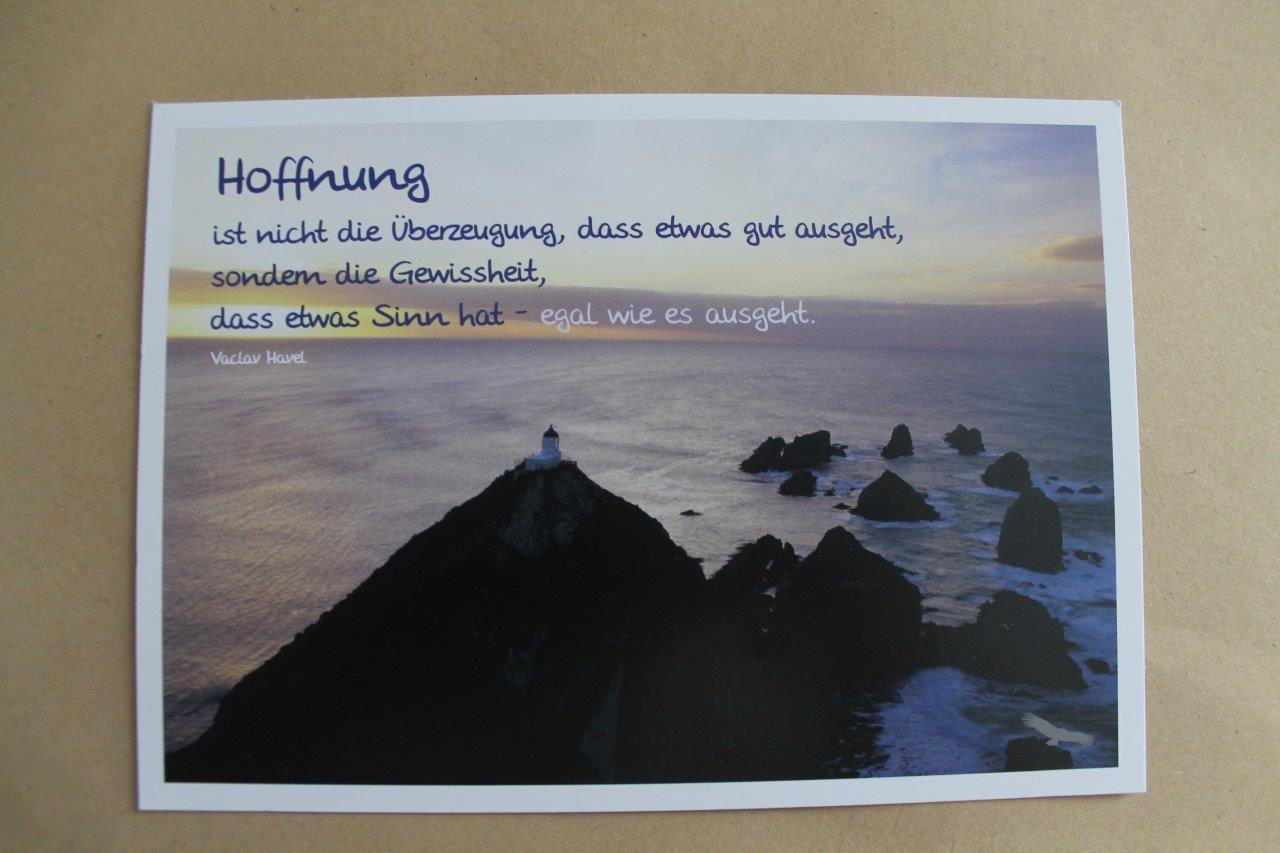 Hoffnung
ist nicht die Überzeugung, dass etwas gut ausgeht,
sondern die Gewissheit,
dass etwas Sinn hat - egal wie es ausgeht.
Vaclav Havel